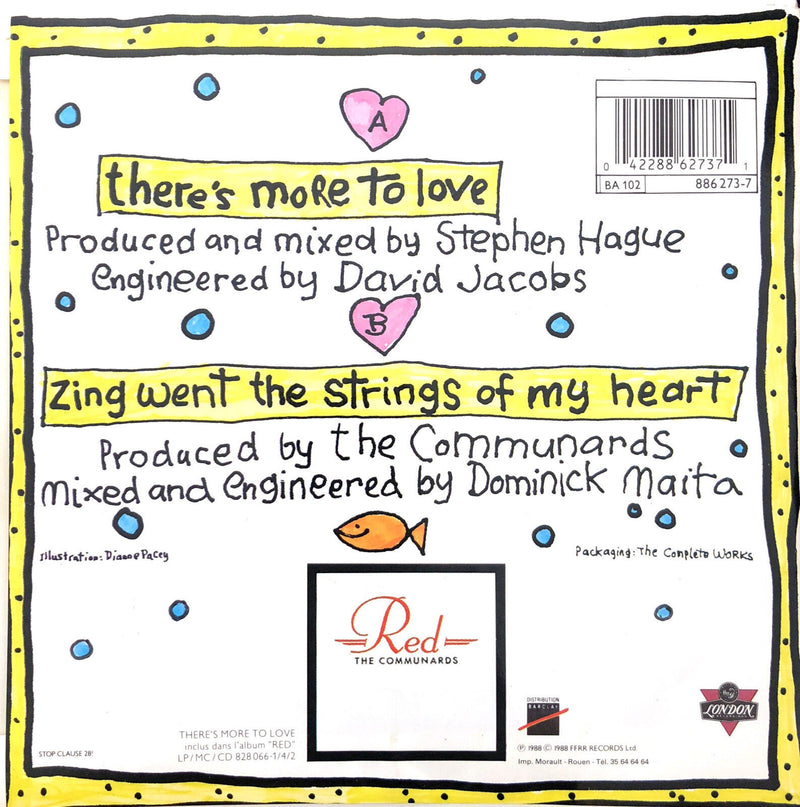 A
there's more to love
Produced and mixed by Stephen Hague
engineered by David Jacobs
B
Zing went the strings of my heart
Produced by the Communards
mixed and engineered by Dominick Maita
Illustration: Dianne Pacey
Packaging: The Complete Works
0 42288 62737 1
BA 102
886 273-7
Red
THE COMMUNARDS
THERE'S MORE TO LOVE
inclus dans l'album "RED"
LP/MC/CD 828 066-1/4/2
STOP CLAUSE 28!
DISTRIBUTION
BARCLAY
Ⓟ 1988 © 1988 FFRR RECORDS Ltd
Imp. Morault - Rouen - Tél. 35 64 64 64
LONDON